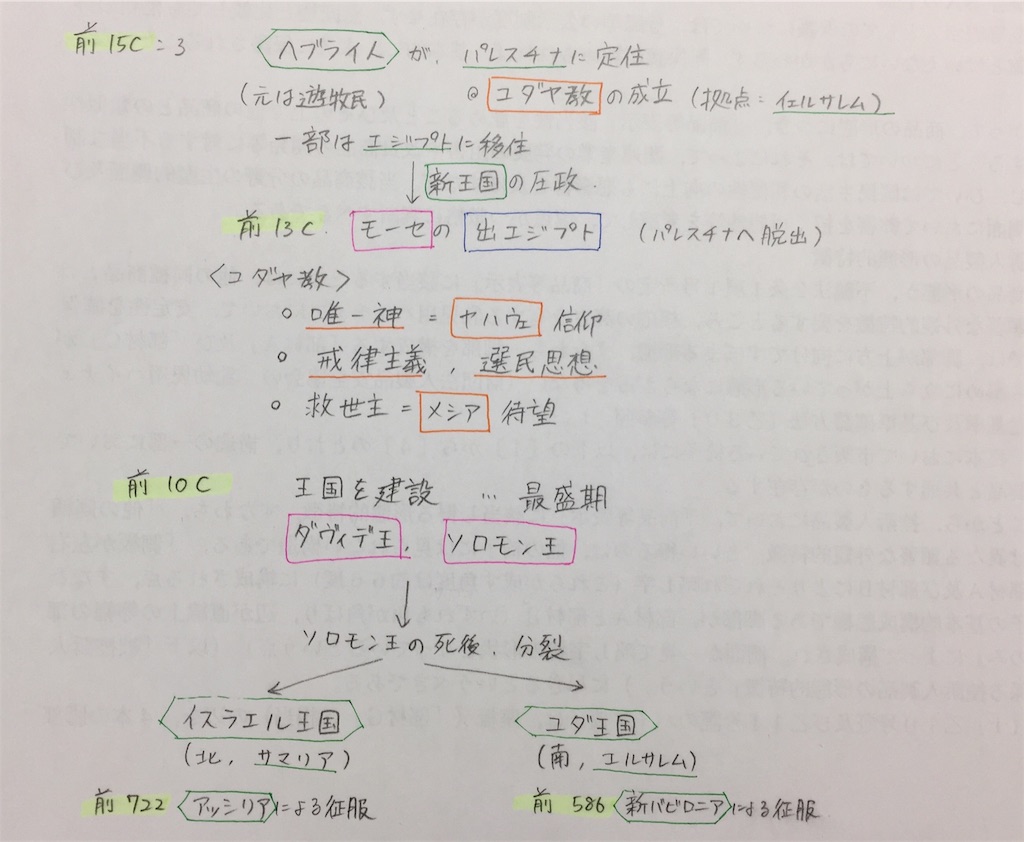 前15C:3 ヘブライ人が、パレスチナに定住
(元は遊牧民) ◎ ユダヤ教の成立 (拠点:イェルサレム)
一部はエジプトに移住
↓ 新王国の圧政.
前13C. モーセの 出エジプト (パレスチナへ脱出)
<ユダヤ教>
○ 唯一神 = ヤハウェ 信仰
○ 戒律主義, 選民思想
○ 救世主 = メシア 待望
前10C 王国を建設 … 最盛期
ダヴィデ王, ソロモン王
ソロモン王の死後、分裂
イスラエル王国 ユダ王国
(北, サマリア) (南, エルサレム)
前722 アッシリアによる征服 前586 新バビロニアによる征服